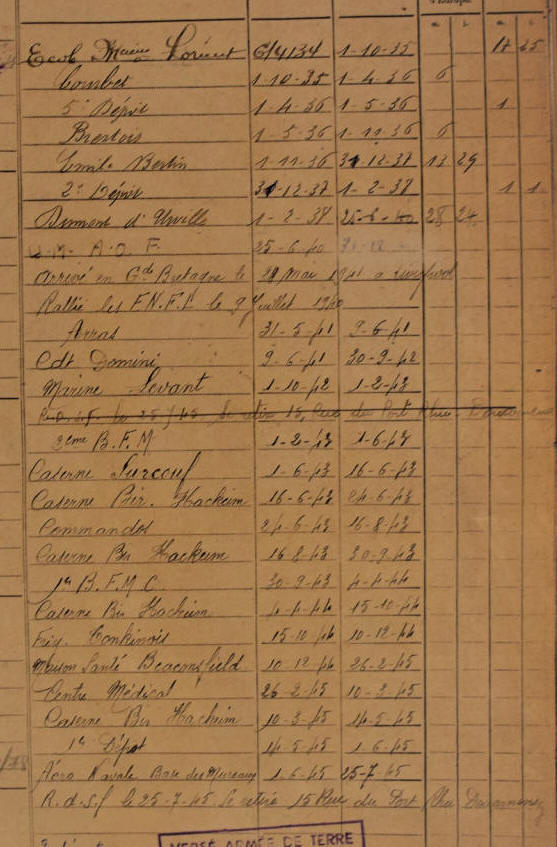 Ecole Marine Lorient 6/4134 1-10-35 17 25
Courbet 1-10-35 1-4-36 6
5e Dépôt 1-4-36 1-5-36 1
Brestois 1-5-36 1-11-36 6
Emile Bertin 1-11-36 31-12-37 13 29
2e Dépôt 31-12-37 1-2-38 1 1
Dumont d'Urville 1-2-38 25-6-40 28 24
U.M. A.O.F. 25-6-40 31-12
Arrivé en Gde Bretagne le Mai 1941 a Liverpool
Rallié les F.N.F.L le 9 Juillet 1940
Arras 31-5-41 9-6-41
Cdt Dominé 9-6-41 30-9-42
Marine Levant 1-10-42 1-2-43
R.d.s.f. le 25/ /45 Se retire 15, Rue du Port Rhu - Douarnenez
3eme B.F.M 1-2-43 1-6-43
Caserne Surcouf 1-6-43 16-6-43
Caserne Bir. Hacheim 16-6-43 24-6-43
Commandos 24-6-43 16-8-43
Caserne Bir Hacheim 16 8-43 30-9-43
1er B.F.M.C. 30-9-43 4-4-44
Caserne Bir Hacheim 4-4-44 15-10-44
Frég. Tonkinois 15-10 44 10-12-44
Maison Santé Beaconsfield 10 12-44 26-2-45
Centre Médical 26-2-45 10-3-45
Caserne Bir Hacheim 10-3-45 14-5-45
1er Dépôt 14-5-45 1-6-45
Aéro Navale Base des Mureaux 1-6-45 25-7-45
R.d.s.f le 25-7-45 Se retire 15 Rue du Port Rhu Douarnenez
VERSÉ ARMÉE DE TERRE